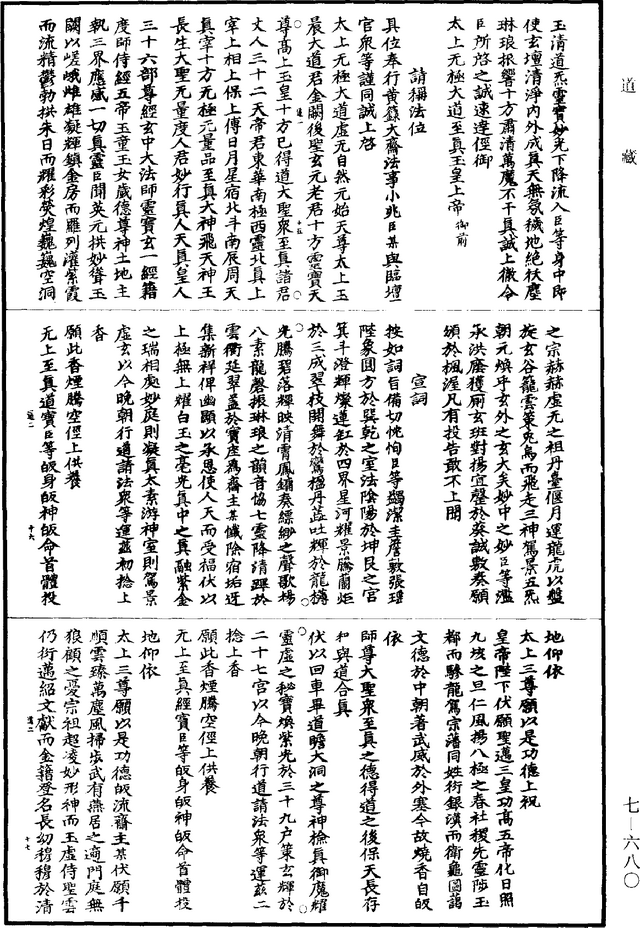 道藏
玉清道炁靈寶妙光下降流入臣等身中即
使玄壇清淨內外成真天無氛穢地絕袄塵
琳琅振響十方肅清萬魔不干真誠上徹令
臣所啓之誠速達徑御
太上无極大道至真玉皇上帝御前
請稱法位
具位奉行黃籙大齋法事小兆臣某與臨壇
官衆等謹同誠上啓
太上无極大道虛无自然元始天尊太上玉
晨大道君金闕後聖玄元老君十方靈寶天
尊高上玉皇十方已得道大聖衆至真諸君
丈人三十二天帝君東華南極西靈北真上
宰上相上保上傅日月星宿北斗南辰周天
真宰十方无極元量品至真大神飛天神王
長生大聖无量度人君妙行真人天真皇人
三十六部尊經玄中大法師靈寶玄一經籍
度師侍經五帝玉童玉女歲德尊神土地主
執三界應感一切真靈臣聞英元拱妙聳玉
闕以嵯峨雌雄凝輝鎮金房而羅列濯紫霞
而流精鬱勃拱朱日而耀彩熒煌巍巍空洞
之宗赫赫虛无之祖丹臺偃月運龍虎以盤
旋玄谷籠雲策兔烏而飛走三神駕景五炁
朝元煥乎玄外之玄大矣妙中之妙臣等濫
承洪廕獲厠玄班對揚宜罄於葵誠敷奏願
頒於楓渥凡有投告敢不上聞
宣詞
按如詞旨備切忱恂臣等蠲潔主詹敷張瑶
陛象圓方於巽乾之室法陰陽於坤艮之宮
箕斗澄輝燦蓮缸於四界星河耀景騰蘭炬
於三成翠杖開舞於鸞楹丹蘤吐輝於龍槫
光騰碧落輝映清霄鳳鏽奏縹緲之聲歌揚
八素龍磬振琳琅之韻音協七靈降清蹕於
雲衢延翠蓋於寶座為齋主某懺除宿垢迓
集新祥俾幽顯以承恩使人天而受福伏以
上極無上耀白玉之毫光真中之真融紫金
之瑞相處妙庭則凝真太素游神室則駕景
虛玄以今晚朝行道請法衆等運茲初捻上
香
願此香煙騰空徑上供養
无上至真道寶臣等皈身皈神皈命首體投
地仰依
太上三尊願以是功德上祝
皇帝陛下伏願聖邁三皇功高五帝化日照
九垓之旦仁風揚八極之春社稷先靈陟玉
都而驂龍駕宗藩同姓衍銀潢而衛龜圖藹
文德於中朝著武威於外塞今故燒香自皈
依
師尊大聖衆至真之德得道之後保天長存
和與道合真
伏以回車畢道瞻大洞之尊神檢真御魔耀
靈虛之秘寶煥紫光於三十九户策玄輝於
二十七宮以今晚朝行道請法衆等運茲二
捻上香
願此香煙騰空徑上供養
无上至真經寶臣等皈身皈神皈命首體投
地仰依
太上三尊願以是功德皈流齋主某伏願千
順雲臻萬塵風掃步武有燕居之適門庭無
狼顧之憂宗祖超凌妙形神而玉虛侍聖雲
仍衍邁紹文獻而金籍登名長幼穆穆於清
七—六八〇